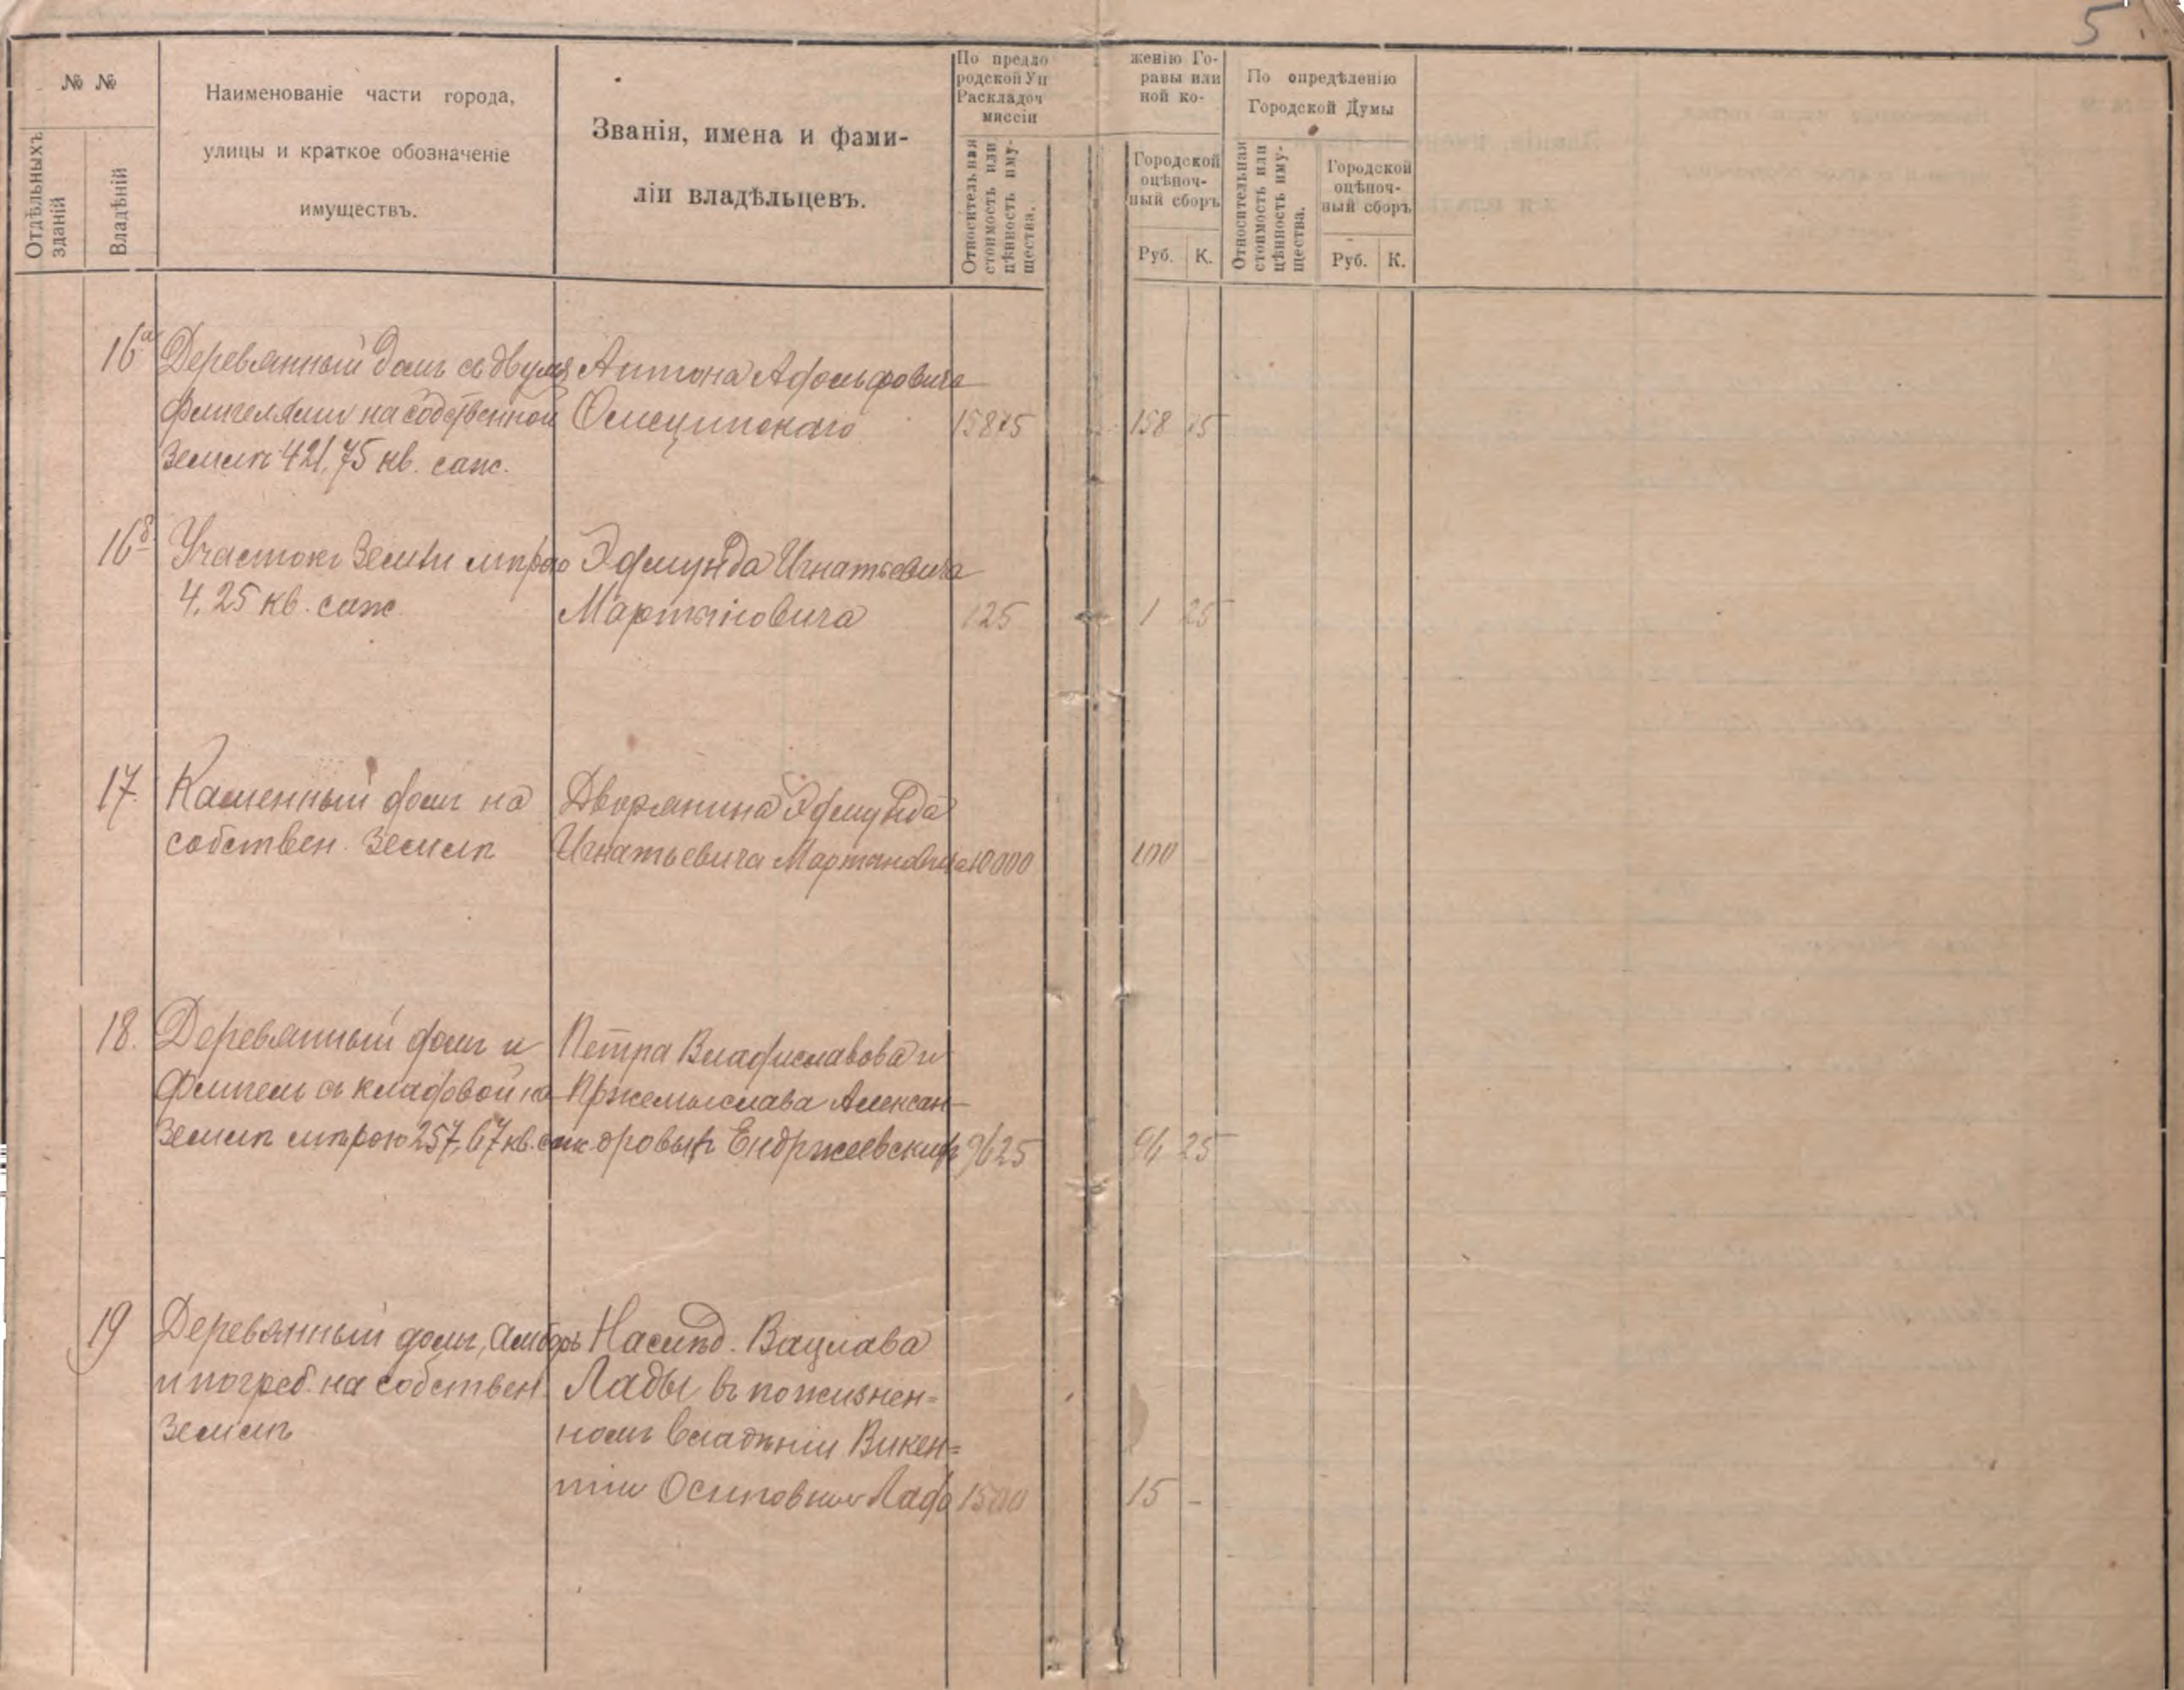 5
№ №
Отдѣльныхъ
зданій
Владѣній
Наименованіе части города,
улицы и краткое обозначеніе
имуществъ.
Званія, имена и фами-
ліи владѣльцевъ.
По предло
родской Уп
Раскладоч
миссіи
Относительная
стоимость или
цѣнность иму-
щества.
женію Го-
равы или
ной ко-
Городской
оцѣноч-
ный сборъ
Руб. К.
По опредѣленію
Городской Думы
Относительная
стоимость или
цѣнность иму-
щества.
Городской
оцѣноч-
ный сборъ
Руб. К.
16а
Деревянный домъ съ двумя
флигелями на собственной
землѣ 421,75 кв. саж.
Антона Адольфовича
15875 158 75
16б
Участокъ земли мѣрою
4,25 кв. саж.
Эдмунда Игнатьевича
Мартыновича
125 1 25
17.
Каменный домъ на
собствен. землѣ
Дворянина Эдмунда
Игнатьевича Мартыновича
10000 100 -
18.
Деревянный домъ и
флигель съ кладовой на
землѣ мѣрою 257,67 кв. саж.
Петра Владиславова и
Пржемыслава Алексан-
дровыхъ Ендржеевскихъ
9625 96 25
19
Деревянный домъ, амбаръ
и погреб. на собствен.
землѣ
Наслѣд. Вацлава
Лады въ пожизнен-
номъ владѣніи Викен-
тіи Осиповны Лада
1500 15 -